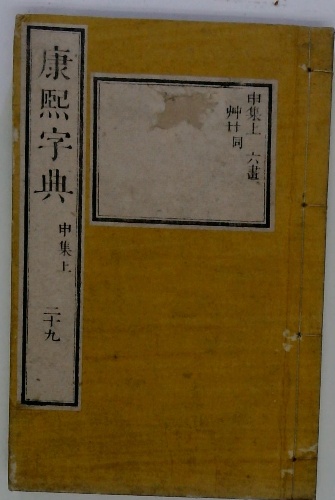 康熙字典 申集上 二十九
申集上 六畫
艸廾同